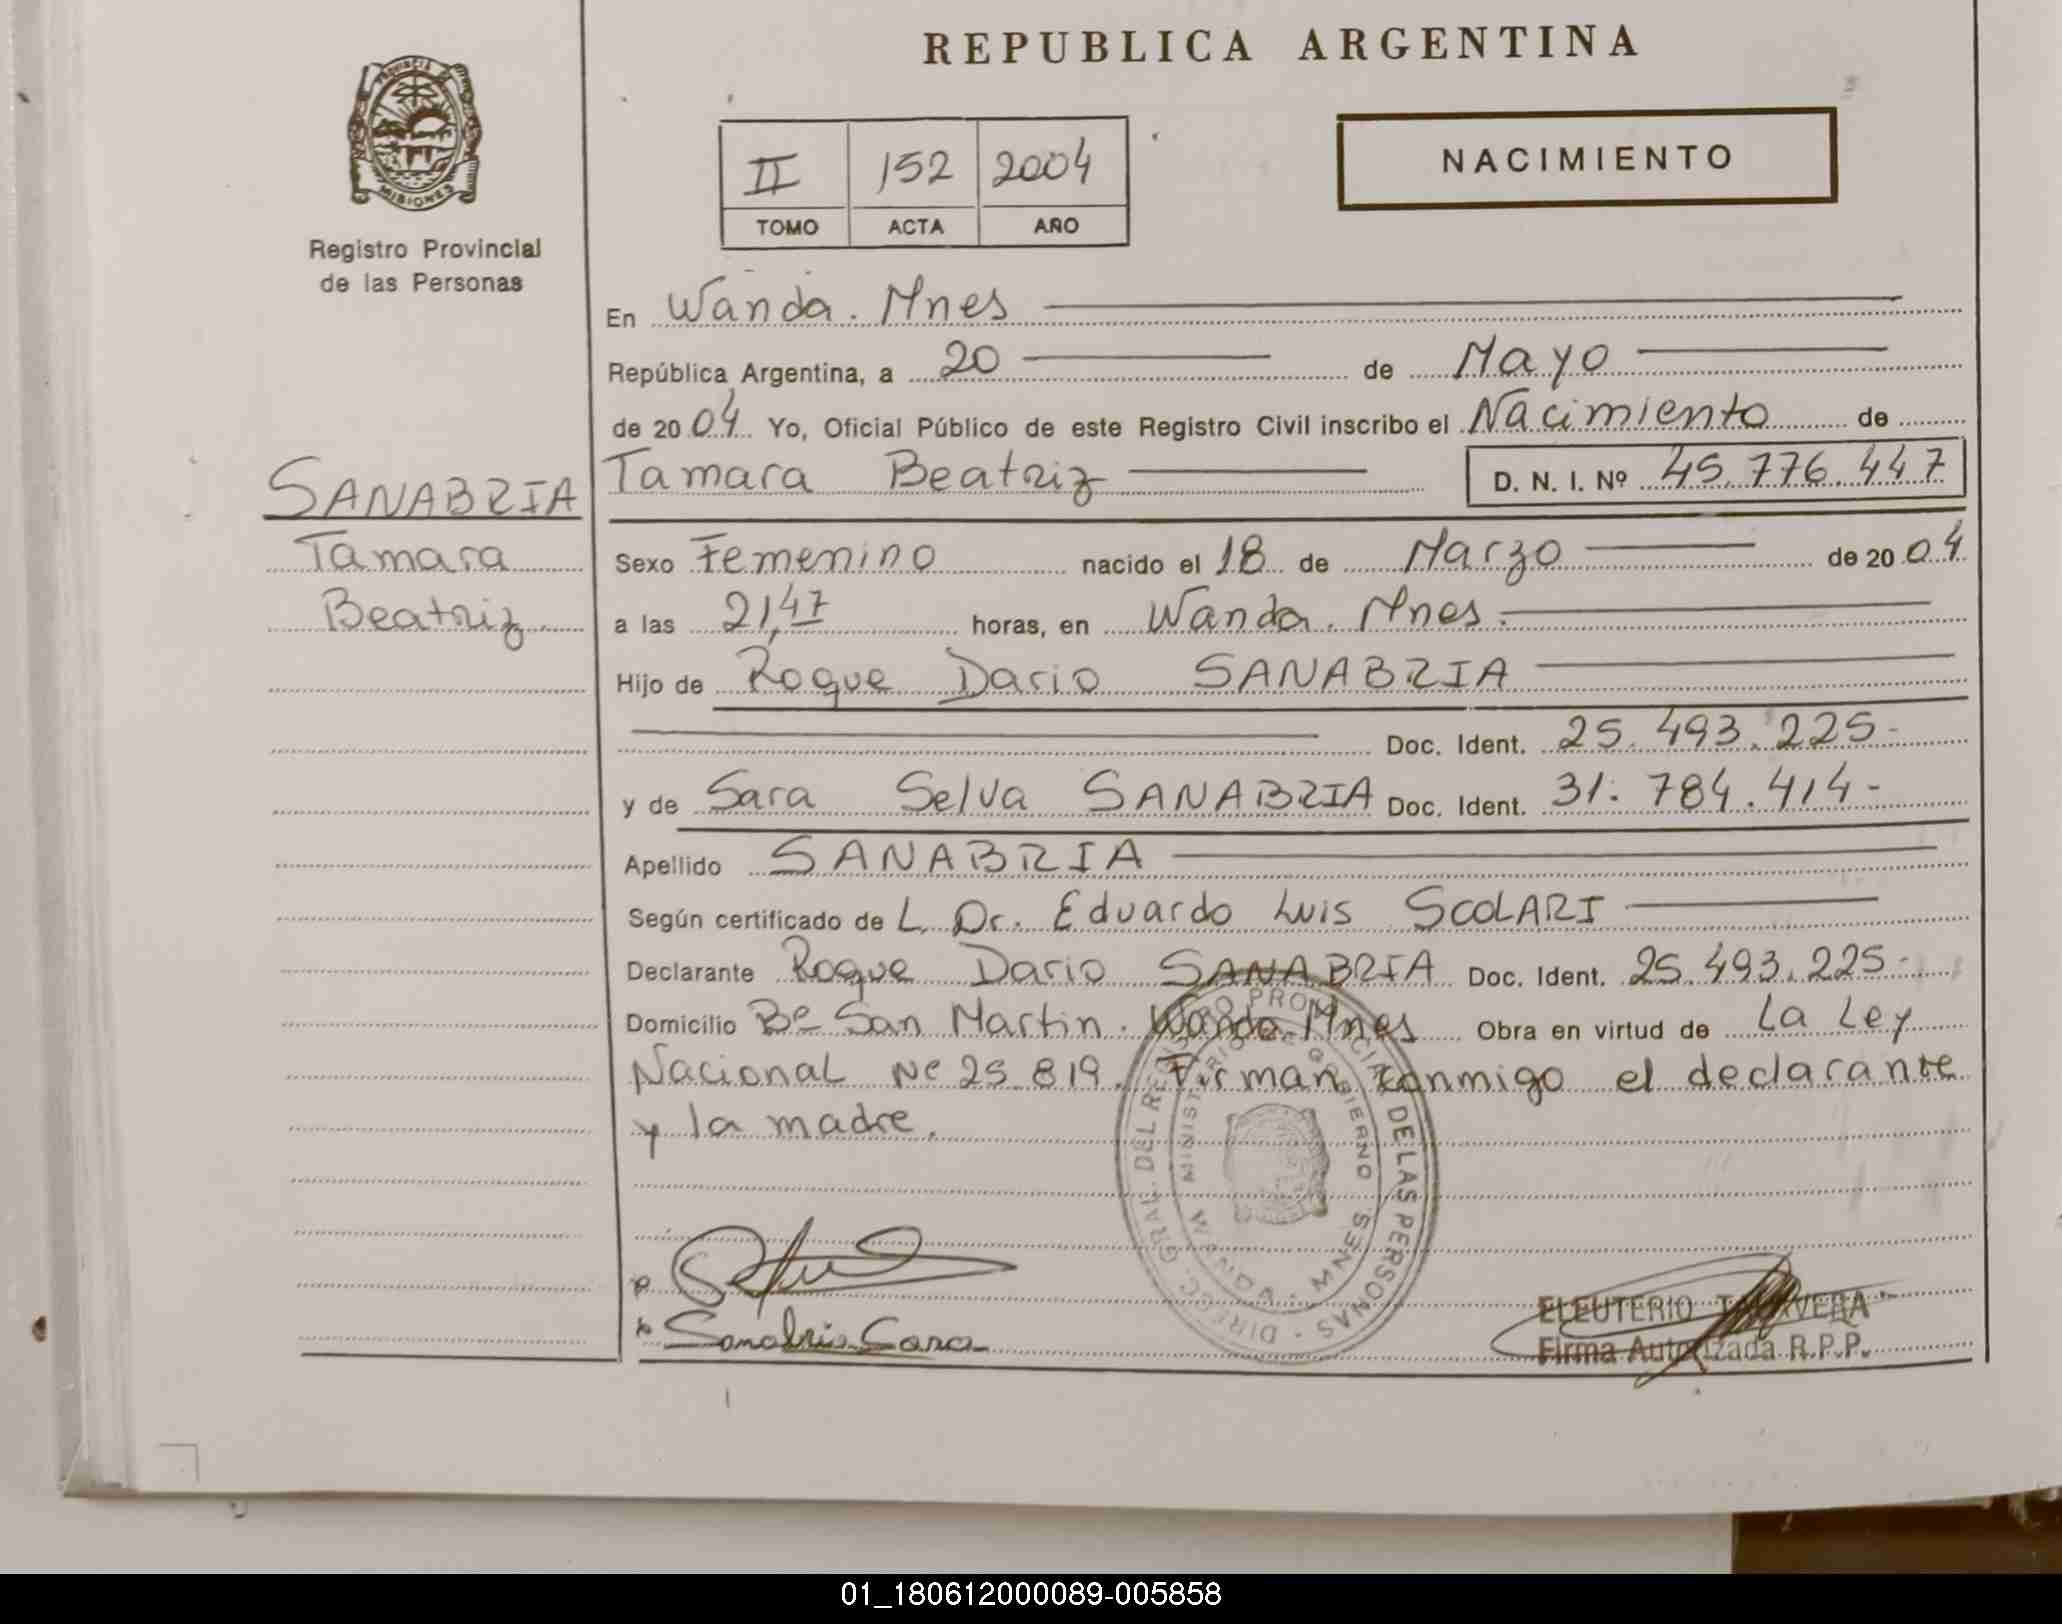 REPUBLICA ARGENTINA
PROVINCIA DE MISIONES
Registro Provincial
de las Personas
II 152 2004
TOMO ACTA AÑO
NACIMIENTO
En Wanda. Mnes
República Argentina, a 20 de Mayo
de 2004 Yo, Oficial Público de este Registro Civil inscribo el Nacimiento de
Tamara Beatriz D. N. I. Nº 45.776.447
SANABRIA
Tamara
Beatriz
Sexo Femenino nacido el 18 de Marzo de 2004
a las 21,47 horas, en Wanda. Mnes.
Hijo de Roque Dario SANABRIA
Doc. Ident. 25.493.225-
y de Sara Selva SANABRIA Doc. Ident. 31.784.414-
Apellido SANABRIA
Según certificado de L. Dr. Eduardo Luis SCOLARI
Declarante Roque Dario SANABRIA Doc. Ident. 25.493.225-
Domicilio Bº San Martin. Wanda. Mnes Obra en virtud de La Ley
Nacional Nº 25.819. Firman conmigo el declarante
y la madre.
DIREC. GRAL. DEL REGISTRO PROVINCIAL DE LAS PERSONAS
MINISTERIO DE GOBIERNO
WANDA - MNES.
Sanabria Sara
ELEUTERIO TALAVERA
Firma Autorizada R.P.P.
01_180612000089-005858